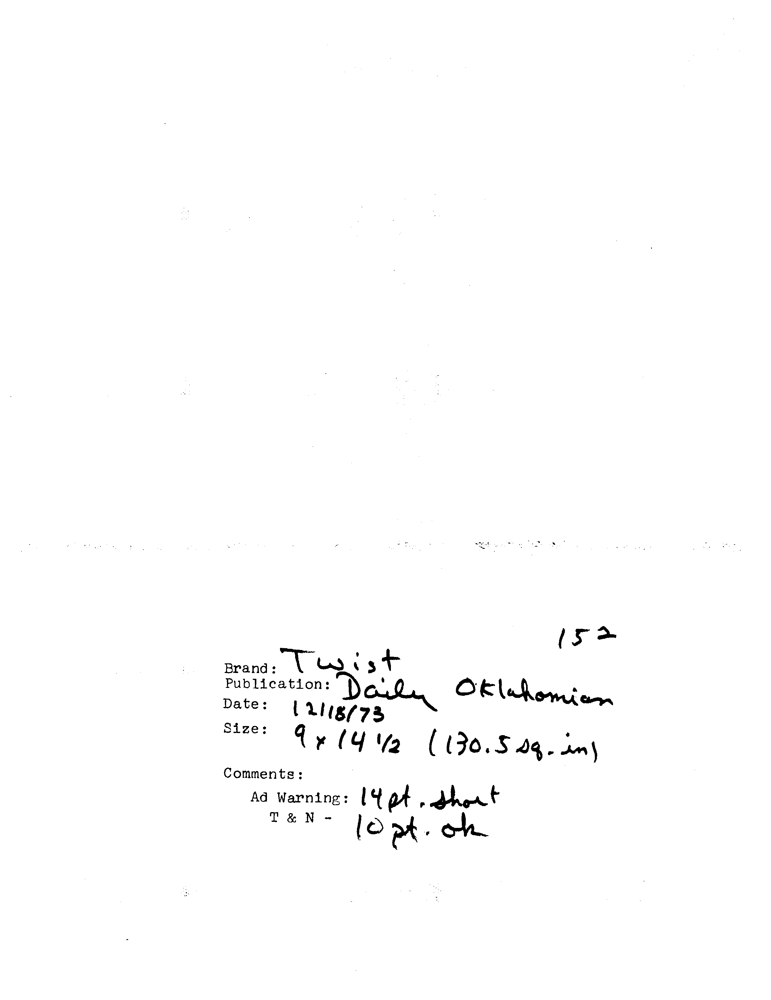 152
Brand: Twist
Publication: Daily Oklahomian
Date: 12/18/73
Size: 9 x 14 1/2 (130.5 sq. in)
Comments:
Ad Warning: 14 pt. short
T & N - 10 pt. ok